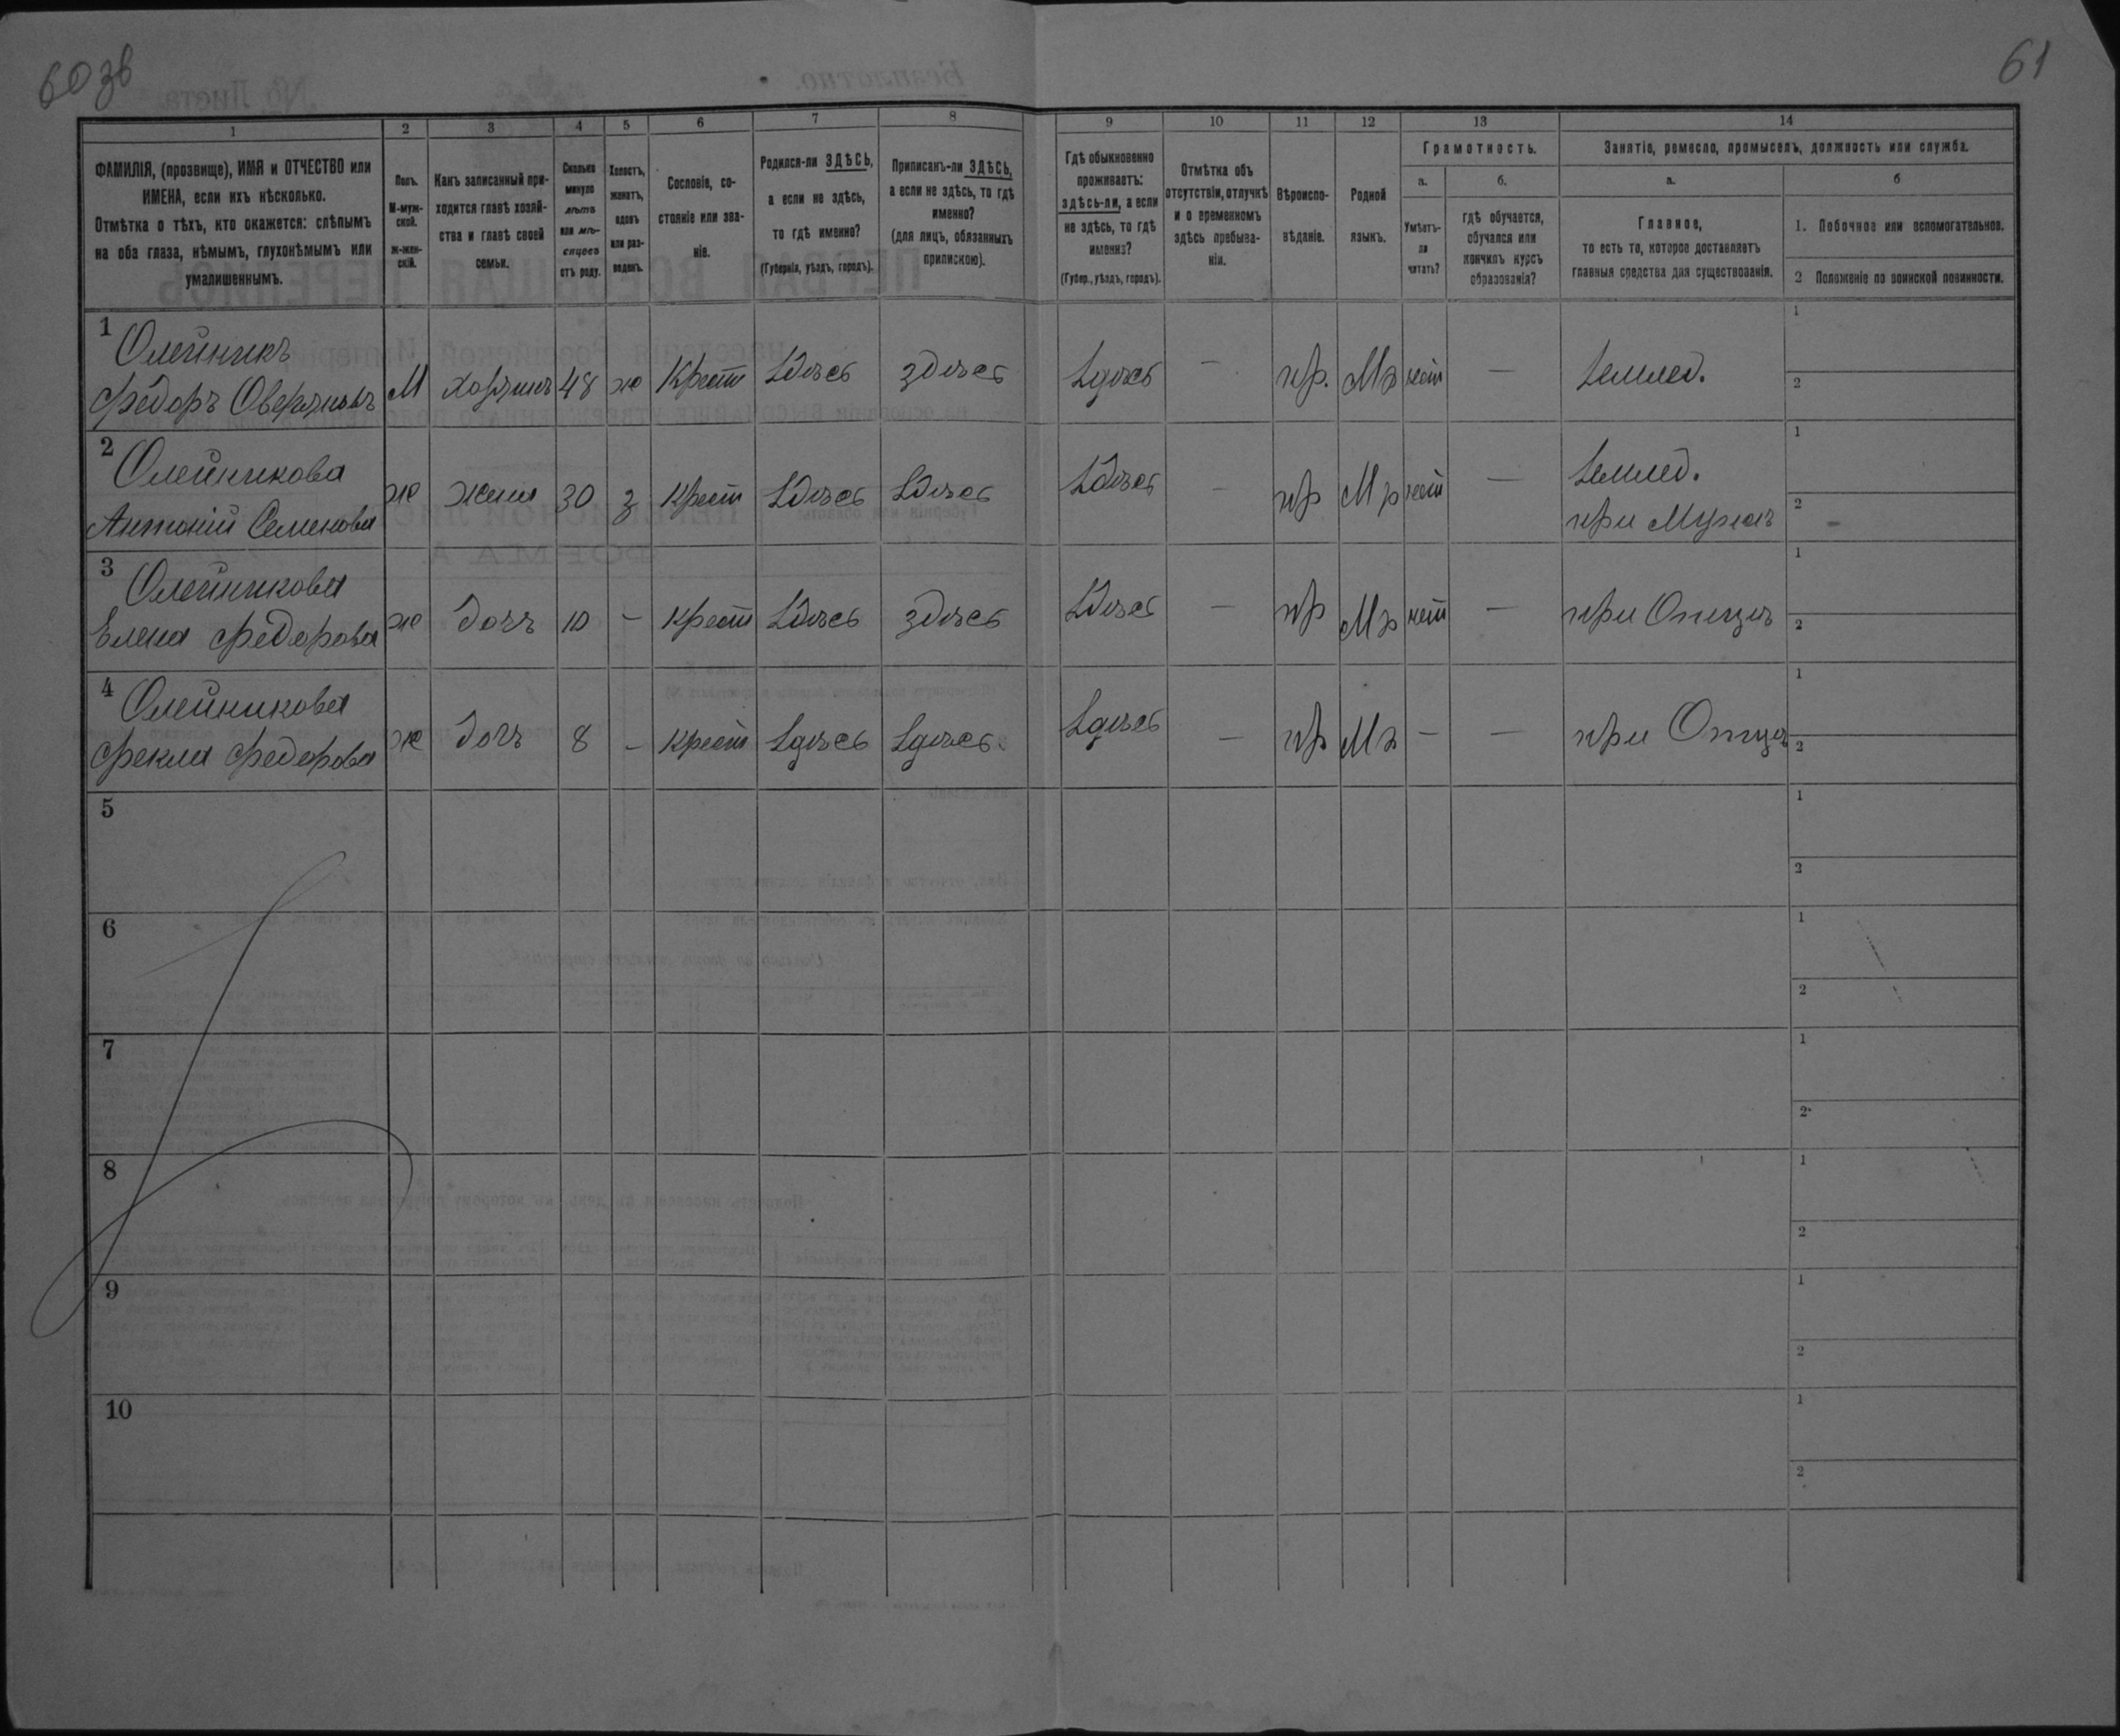 60 зв
61
1 2 3 4 5 6 7 8 9 10 11 12 13 14
ФАМИЛІЯ, (прозвище), ИМЯ и ОТЧЕСТВО или
ИМЕНА, если ихъ нѣсколько.
Отмѣтка о тѣхъ, кто окажется: слѣпымъ
на оба глаза, нѣмымъ, глухонѣмымъ или
умалишеннымъ.
Полъ.
М-муж-
ской.
Ж-жен-
скій.
Какъ записанный при-
ходится главѣ хозяй-
ства и главѣ своей
семьи.
Сколько
минуло
лѣтъ
или мѣ-
сяцевъ
отъ роду.
Холостъ,
женатъ,
вдовъ
или раз-
веденъ.
Сословіе, со-
стояніе или зва-
ніе.
Родился-ли ЗДѢСЬ,
а если не здѣсь,
то гдѣ именно?
(Губернія, уѣздъ, городъ).
Приписанъ-ли ЗДѢСЬ,
а если не здѣсь, то гдѣ
именно?
(для лицъ, обязанныхъ
припискою).
Гдѣ обыкновенно
проживаетъ:
здѣсь-ли, а если
не здѣсь, то гдѣ
именно?
(Губер., уѣздъ, городъ).
Отмѣтка объ
отсутствіи, отлучкѣ
и о временномъ
здѣсь пребыва-
ніи.
Вѣроиспо-
вѣданіе.
Родной
языкъ.
Грамотность.
а.
Умѣетъ-
ли
читать?
б.
гдѣ обучается,
обучался или
кончилъ курсъ
образованія?
Занятіе, ремесло, промыселъ, должность или служба.
а.
Главное,
то есть то, которое доставляетъ
главныя средства для существованія.
б
1. Побочное или вспомогательное.
2 Положеніе по воинской повинности.
1 Олейникъ
Федоръ Оверяновъ М хозяинъ 48 ж Крест Здѣсь здѣсь Здѣсь — пр. Мр нет — Землед. 1 2
2 Олейникова
Антоній Семенова ж жена 30 з Крест Здѣсь Здѣсь Здѣсь — пр Мр нет — Землед.
при Мужѣ 1 2
3 Олейникова
Елена Федорова ж дочь 10 - Крест Здѣсь здѣсь Здѣсь — пр Мр нет — при Отцѣ 1 2
4 Олейникова
Фекла Федорова ж дочь 8 - Крест Здѣсь Здѣсь. Здѣсь — пр Мр — — при Отцѣ 1 2
5 1 2
6 1 2
7 1 2
8 1 2
9 1 2
10 1 2